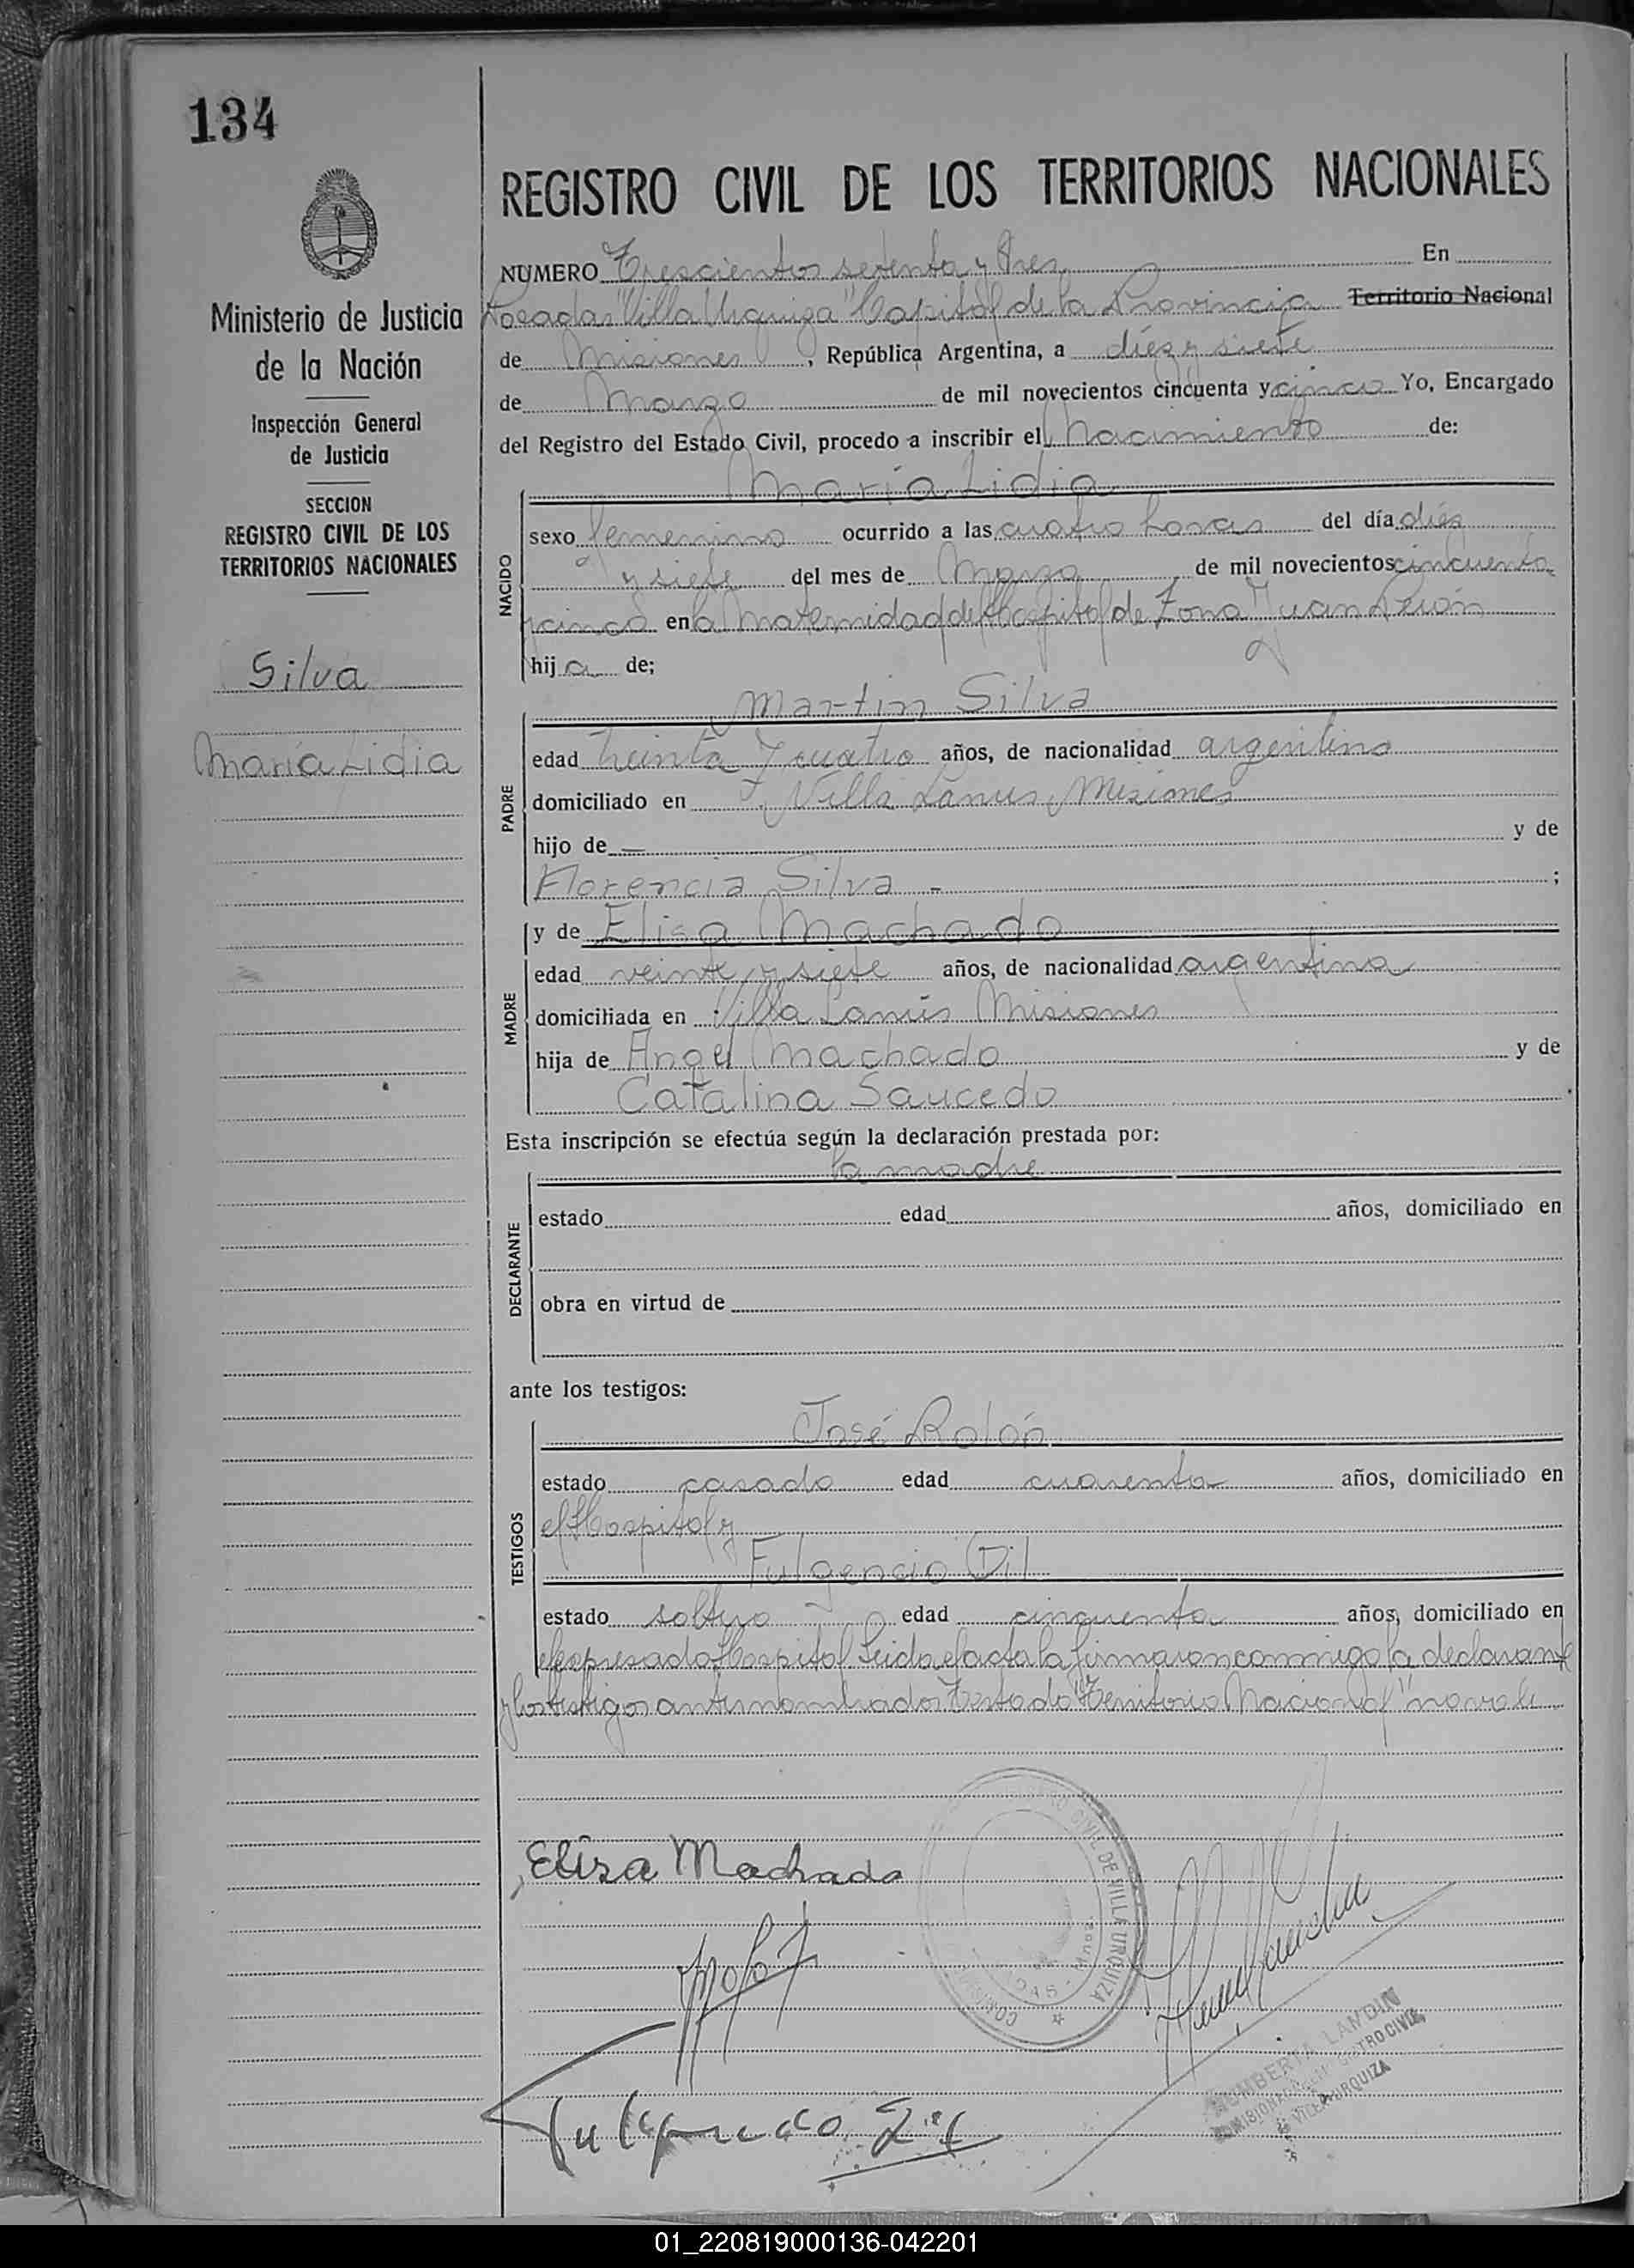 134
Ministerio de Justicia
de la Nación
Inspección General
de Justicia
SECCION
REGISTRO CIVIL DE LOS
TERRITORIOS NACIONALES
Silva
María Lidia
REGISTRO CIVIL DE LOS TERRITORIOS NACIONALES
NUMERO Trescientos setenta y tres En
Posadas "Villa Urquiza" Capital de la Provincia Territorio Nacional
de Misiones, República Argentina, a diez y siete
de Marzo de mil novecientos cincuenta y cinco Yo, Encargado
del Registro del Estado Civil, procedo a inscribir el Nacimiento de:
María Lidia
NACIDO
sexo femenino ocurrido a las cuatro horas del día diéz
y siete del mes de Marzo de mil novecientos cincuenta
y cinco en la Maternidad del Hospital de Zona "Juan Perón
hij a de;
Martin Silva
PADRE
edad treinta y cuatro años, de nacionalidad argentino
domiciliado en Villa Lanus, Misiones
hijo de — y de
Florencia Silva - ;
y de Elisa Machado
MADRE
edad veinte y siete años, de nacionalidad argentina
domiciliada en Villa Lanús Misiones
hija de Angel Machado y de
Catalina Saucedo
Esta inscripción se efectúa según la declaración prestada por:
la madre
DECLARANTE
estado edad años, domiciliado en
obra en virtud de
ante los testigos:
José Rolón
TESTIGOS
estado casado edad cuarenta años, domiciliado en
el Hospital y
Fulgencio Dil
estado soltero edad cincuenta años, domiciliado en
el expresado Hospital Leida el acta la firmaron conmigo la declarante
y los testigos antes nombrados Testado "Territorio Nacional" no vale
Elisa Machado
REGISTRO CIVIL DE VILLA URQUIZA
POSADAS - Mnes.
HUMBERTA LANDIN
REGISTRO CIVIL
VILLA URQUIZA
01_220819000136-042201